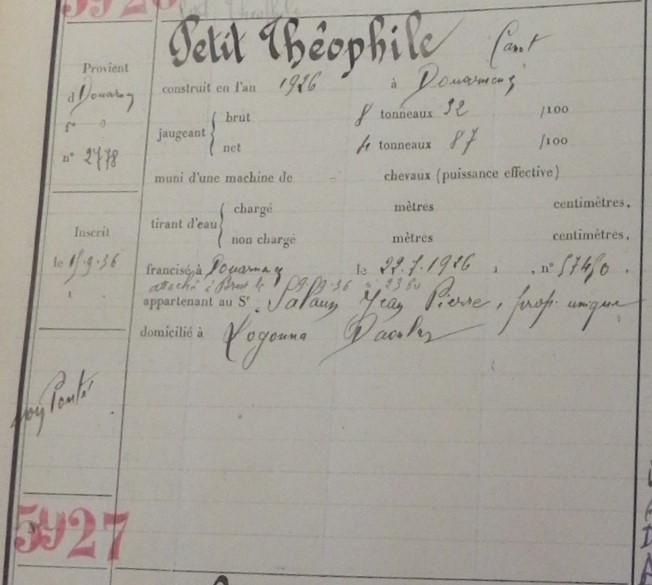 Petit Théophile Cant
Provient
d Douarn
n° 2778
construit en l'an 1926 à Douarnenez
jaugeant brut 8 tonneaux 32 /100
net 4 tonneaux 87 /100
muni d'une machine de chevaux (puissance effective)
tirant d'eau chargé mètres centimètres.
non chargé mètres centimètres.
Inscrit
le 15.9.36
francisé à Douarnez le 22.7.1926 , n°
attaché à Brest le
appartenant au Sr. Salaun Jean Pierre, prop. unique
domicilié à Logonna Daoulas
Ponté
5927